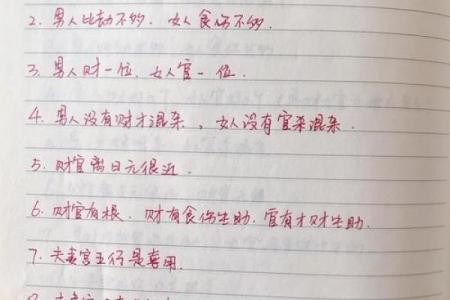 2. 男人比劫不多. 女人食伤不多.
3. 男人财一位, 女人官一位.
4. 男人没有财才混杂, 女人没有官杀混杂.
5. 财官离日元很近.
6. 财官有根. 财有食伤生助. 官有才财生助.
7. 夫妻宫五行是喜用.